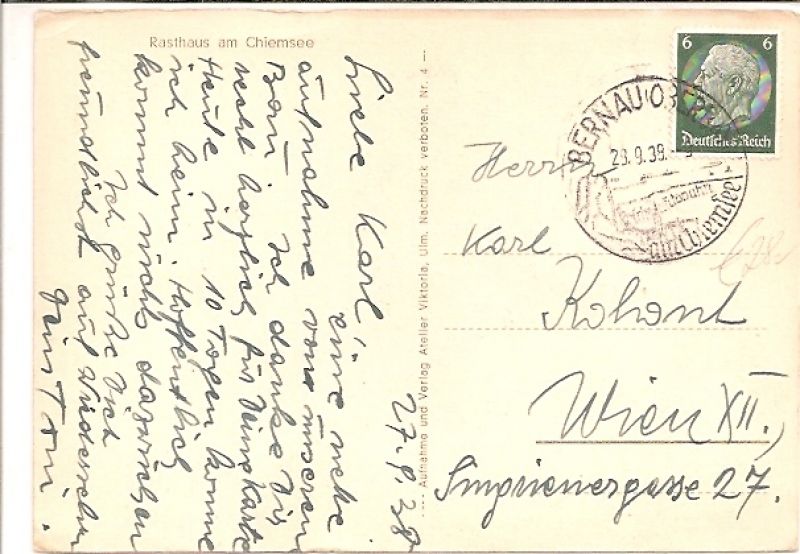 Rasthaus am Chiemsee
27.9.38
Liebe Karl!
eine nette
Aufnahme vom unseren
Bau. Ich danke Dir
recht herzlich für Deine Karte
Heute in 10 Tagen komme
ich heim. Hoffentlich
kommt nichts dazwischen
Ich grüße Dich
freundlichst auf Wiedersehen
Dein Toni.
Aufnahme und Verlag Atelier Viktoria, Ulm. Nachdruck verboten. Nr. 4
6 6
Deutsches Reich
BERNAU
28.9.39.
am Chiemsee
Herrn
Karl
Wien XII.,
27.